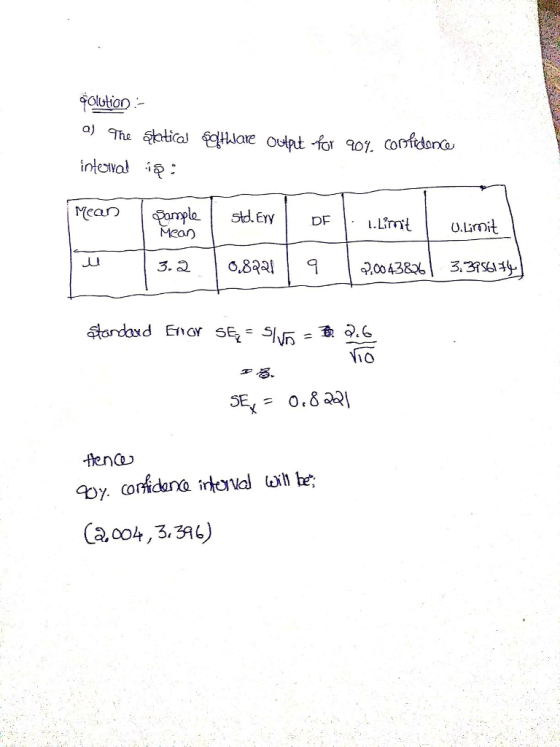 Solution :-
a) The Statical Software Output for 90% confidence
interval is :
Mean Sample Mean Std. Err DF L.Limit U.Limit
μ 3.2 0.8221 9 2.0043826 3.3956174
Standard Error SEx = S/√n = 2.6/√10
=
SEx = 0.8221
Hence
90%. confidence interval will be;
(2.004, 3.396)